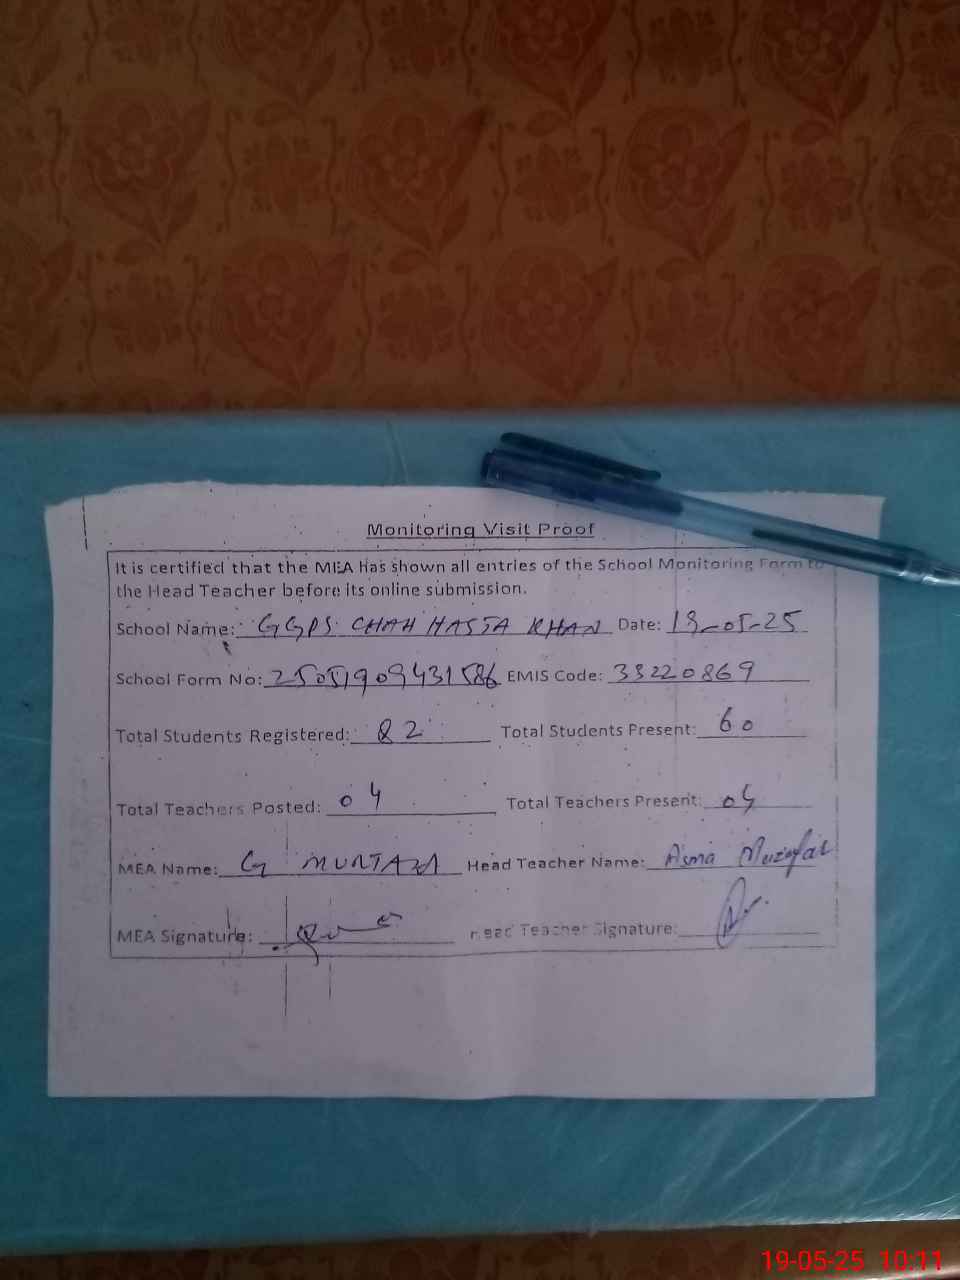 Monitoring Visit Proof
It is certified that the MEA has shown all entries of the School Monitoring Form to
the Head Teacher before its online submission.
School Name: GGPS CHAH HASTA KHAN Date: 19-05-25
School Form No: 25051909431586 EMIS Code: 33220869
Total Students Registered: 82 Total Students Present: 60
Total Teachers Posted: 04 Total Teachers Present: 04
MEA Name: G MURTAZA Head Teacher Name: Asma Muzafar
MEA Signature: Head Teacher Signature:
19-05-25 10:11